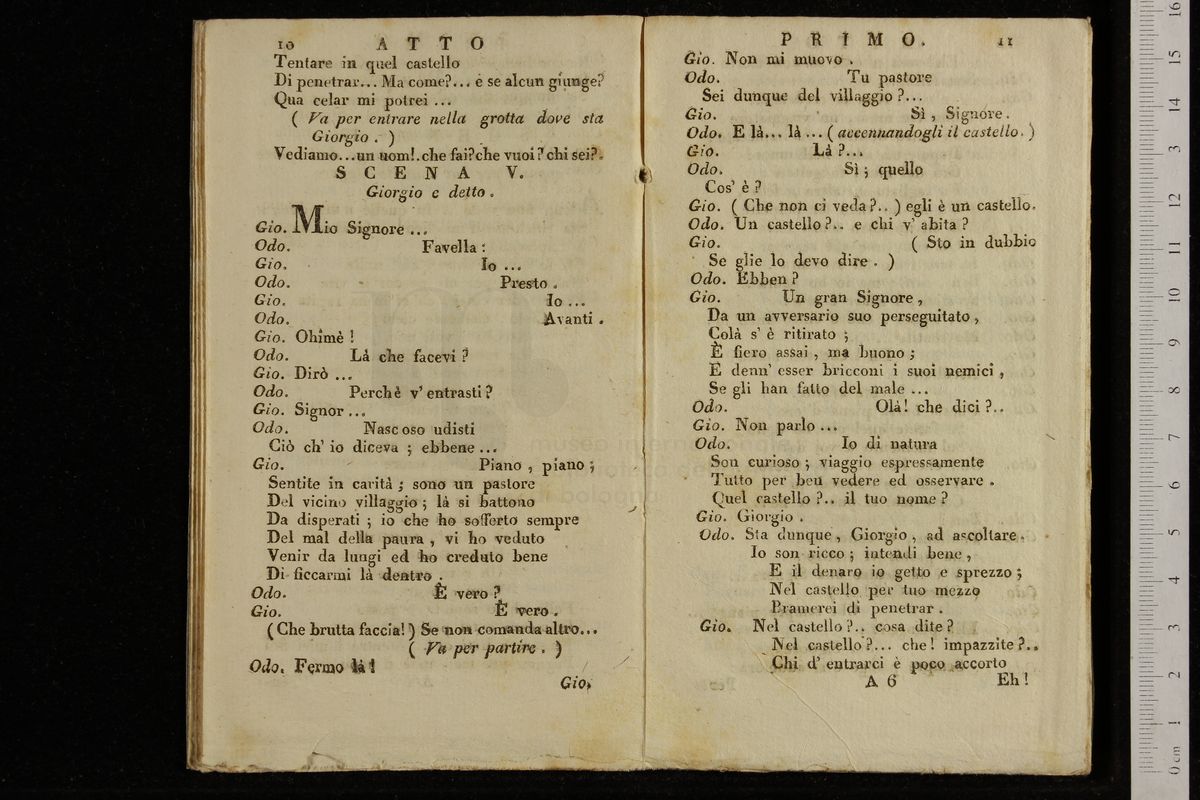 10 ATTO
Tentare in quel castello
Di penetrar... Ma come?... e se alcun giunge?
Qua celar mi potrei ...
( Va per entrare nella grotta dove sta
Giorgio . )
Vediamo...un uom!.che fai?che vuoi? chi sei?.
SCENA V.
Giorgio e detto .
Gio. Mio Signore ...
Odo. Favella :
Gio. Io ...
Odo. Presto .
Gio. Io ...
Odo. Avanti .
Gio. Ohimè !
Odo. Là che facevi ?
Gio. Dirò ...
Odo. Perchè v' entrasti ?
Gio. Signor ...
Odo. Nascoso udisti
Ciò ch' io diceva ; ebbene ...
Gio. Piano , piano ;
Sentite in carità ; sono un pastore
Del vicino villaggio ; là si battono
Da disperati ; io che ho sofferto sempre
Del mal della paura , vi ho veduto
Venir da lungi ed ho creduto bene
Di ficcarmi là dentro .
Odo. È vero ?
Gio. È vero .
( Che brutta faccia! ) Se non comanda altro...
( Va per partire . )
Odo. Fermo là !
Gio.
PRIMO. 11
Gio. Non mi muovo .
Odo. Tu pastore
Sei dunque del villaggio ?...
Gio. Sì , Signore .
Odo. E là... là ... ( accennandogli il castello . )
Gio. Là ?...
Odo. Sì ; quello
Cos' è ?
Gio. ( Che non ci veda ?.. ) egli è un castello.
Odo. Un castello ?.. e chi v' abita ?
Gio. ( Sto in dubbio
Se glie lo devo dire . )
Odo. Ebben ?
Gio. Un gran Signore ,
Da un avversario suo perseguitato ,
Colà s' è ritirato ;
È fiero assai , ma buono ;
E denn' esser bricconi i suoi nemici ,
Se gli han fatto del male ...
Odo. Olà ! che dici ?..
Gio. Non parlo ...
Odo. Io di natura
Son curioso ; viaggio espressamente
Tutto per ben vedere ed osservare .
Quel castello ?.. il tuo nome ?
Gio. Giorgio .
Odo. Sta dunque , Giorgio , ad ascoltare .
Io son ricco ; intendi bene ,
E il denaro io getto e sprezzo ;
Nel castello per tuo mezzo
Bramerei di penetrar .
Gio. Nel castello ?.. cosa dite ?
Nel castello ?... che ! impazzite ?..
Chi d' entrarci è poco accorto
A 6 Eh !